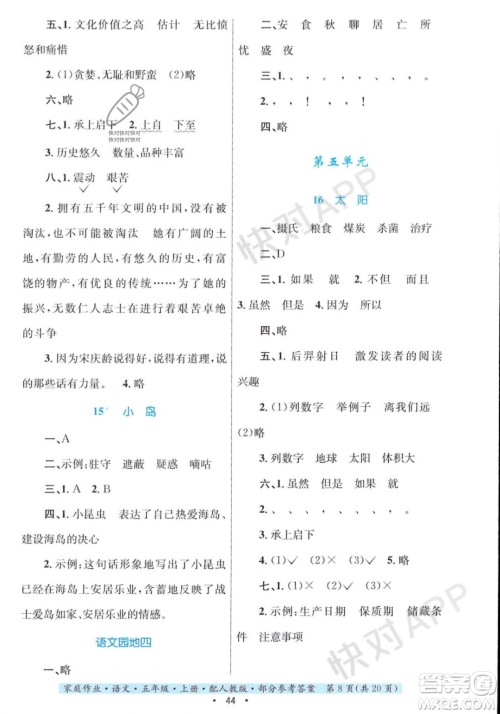 五、1. 文化价值之高　估计　无比愤
怒和痛惜
2. (1)贪婪、无耻和野蛮　(2)略
六、略
七、1. 承上启下　2. 上自　下至
3. 历史悠久　数量、品种丰富
八、1. 震动　艰苦
2. 拥有五千年文明的中国，没有被
淘汰，也不可能被淘汰　她有广阔的土
地，有勤劳的人民，有悠久的历史，有富
饶的物产，有优良的传统……为了她的
振兴，无数仁人志士在进行着艰苦卓绝
的斗争
3. 因为宋庆龄说得好，有道理，说
的那些话有力量。　4. 略
15* 小 岛
一、A
二、示例：驻守　遮蔽　疑惑　嘀咕
三、略
四、1. (1)A　(2)B　2. 略
五、1. 小昆虫　大丈夫　热爱海岛、
建设海岛
2. 示例：这句话形象地写出了小昆
虫在海岛上安居乐业，也反映了海岛战
士爱岛如家、安居乐业的情感。
语文园地四
一、略
二、安　食　秋　聊　居　亡　所
忧　盛　夜
三、1. ，　，　，　，　，　。
2. ，　，　！　，　！　！
四、略
第五单元
16 太 阳
一、摄氏　粮食　煤炭　杀菌　治疗
二、略
三、1. 如果　就　2. 如果　就
3. 虽然　但是　4. 因为　所以
四、略
五、1. 后羿射日　激发读者的阅读
兴趣
2. (1)列数字　举例子　离我们远
(2)略
3. 列数字　地球　太阳　体积大
六、1. (1)✓　(2)×　(3)✓　(4)✓
2. 略
3. 承上启下
4. (1)✓　(2)✓　(3)✓
七、1. (1)×　(2)✓　(3)×
2. 示例：生产日期　保质期　储藏条
件　注意事项
家庭作业·语文·五年级·上册·配人教版·部分参考答案　第8页(共20页)
44
快对
快对快对
快对快对
快对APP
快对APP
快对APP